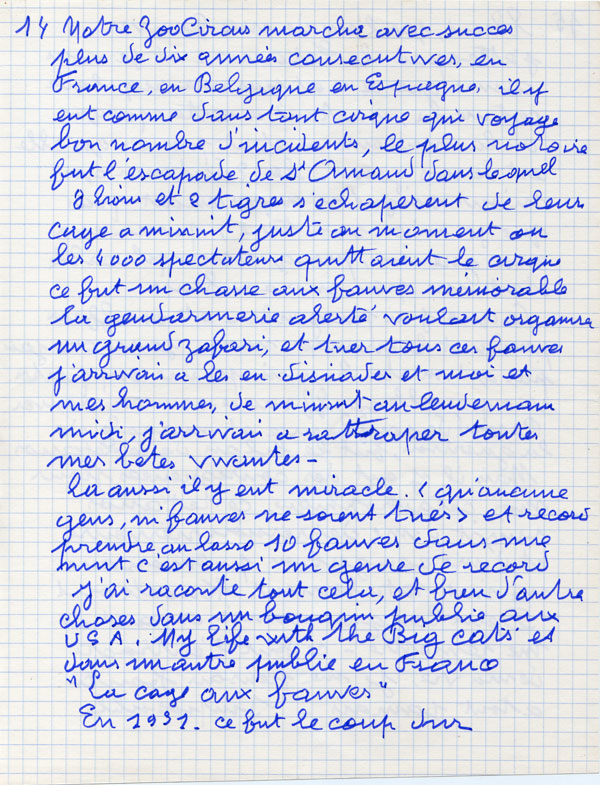 14 Notre ZooCircus marcha avec succes
plus de dix années consecutives, en
France, en Belgique en Espagne, il y
eut comme dans tout cirque qui voyage
bon nombre d'incidents, le plus notoire
fut l'escapade de St Amand dans lequel
8 lions et 2 tigres s'echaperent de leur
cage a minuit, juste au moment ou
les 4000 spectateurs quittaient le cirque
ce fut un chasse aux fauves mémorable
la gendarmerie alerté voulait organiser
un grand zafari, et tuer tous ces fauves
j'arrivai a les en disuader et moi et
mes hommes, de minuit au lendemain
midi, j'arrivai a rattraper toutes
mes betes vivantes -
la aussi il y eut miracle. < qu'aucune
gens, ni fauves ne soient tués > et record
prendre au lasso 10 fauves dans une
nuit c'est aussi un genre de record
j'ai raconté tout cela, et bien d'autre
choses dans un bouquin publie aux
USA. My life with the Big cats et
dans un autre publie en France
"La cage aux fauves"
En 1931. ce fut le coup dur